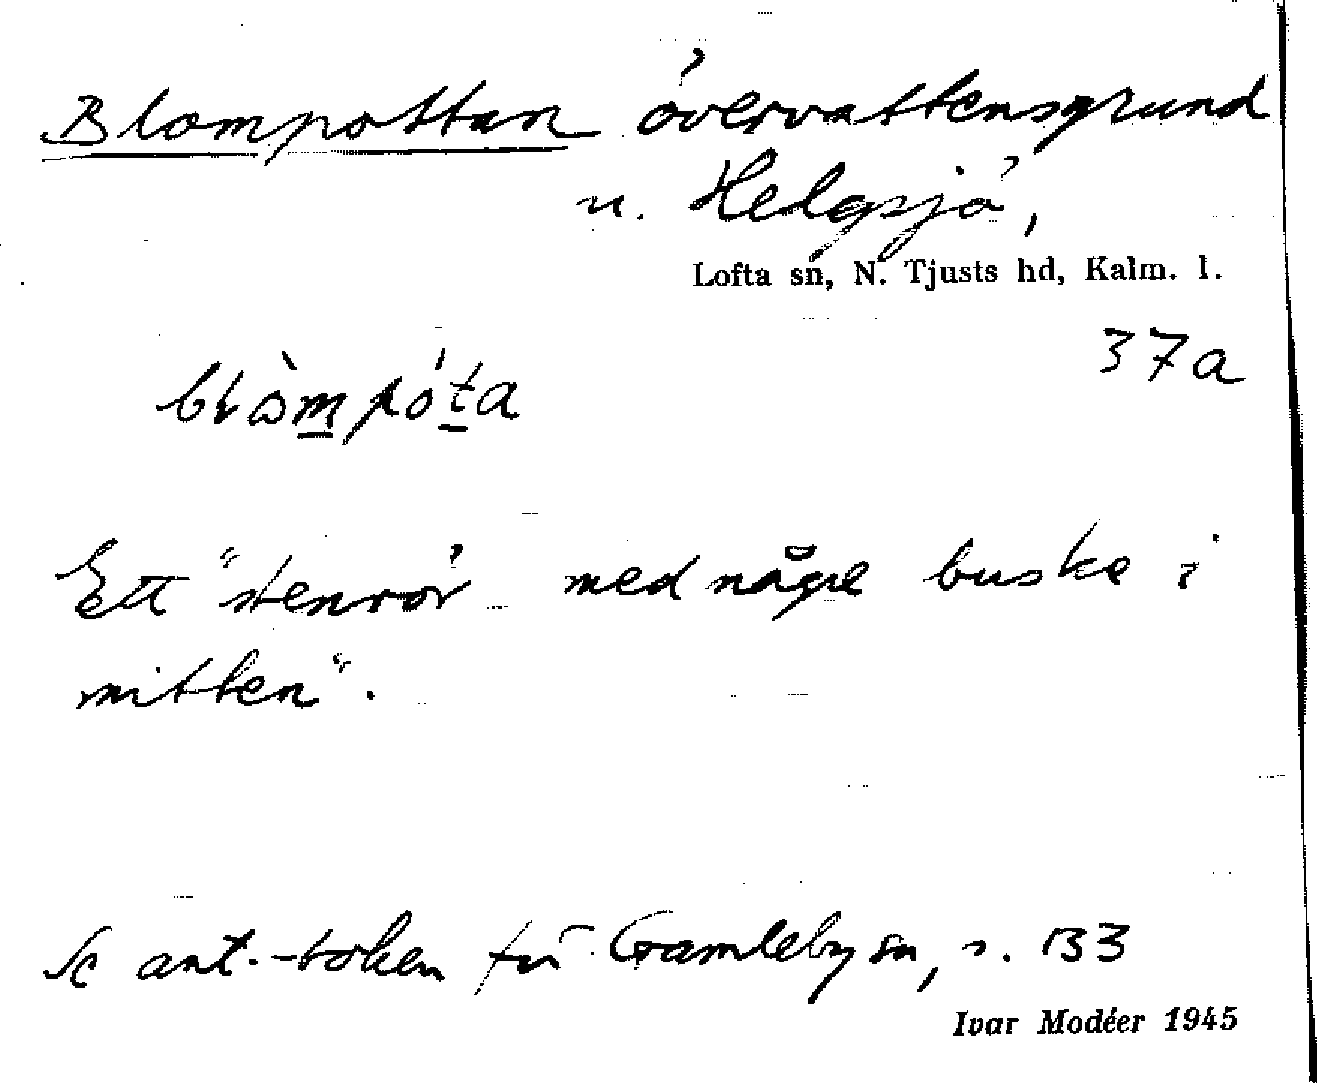 Blompottan övervattensgrund
u. Helgsjö,
Lofta sn, N. Tjusts hd, Kalm. l.
37a
blòmpóta
Ett "stenrör med någe buske i
mitten".
Se ant.-boken för Gamleby sn, s. 133
Ivar Modéer 1945